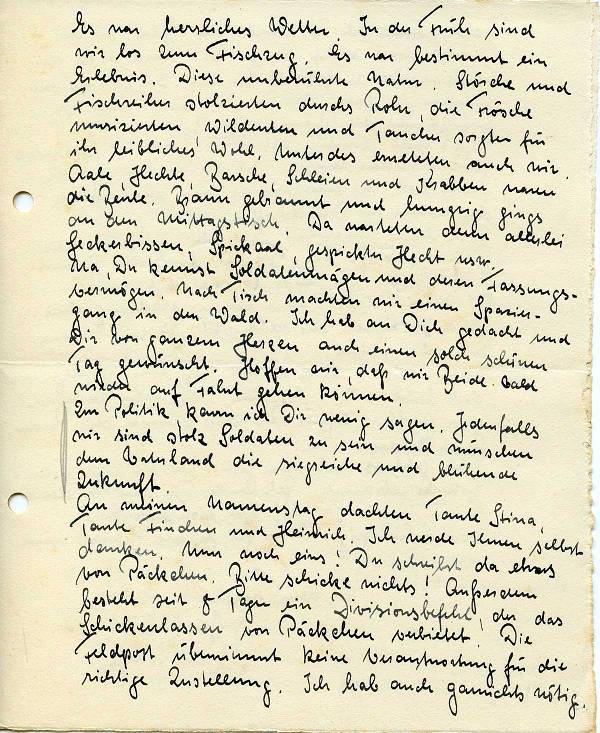 Es war herrliches Wetter. In der Früh sind
wir los zum Fischzug. Es war bestimmt ein
Erlebnis. Diese unberührte Natur. Störche und
Fischreiher stolzierten durchs Rohr, die Frösche
musizierten, Wildenten und Taucher sorgten für
ihr leibliches Wohl. Unterdes ernteten auch wir.
Aale, Hechte, Barsche, Schleien und Krabben waren
die Beute. Braun gebrannt und hungrig gings
an den Mittagstisch. Da warteten denn allerlei
Leckerbissen, Spickaal, gespickter Hecht usw.
Na, Du kennst Soldatenmägen und deren Fassungs-
vermögen. Nach Tisch machten wir einen Spazier-
gang in den Wald. Ich hab an Dich gedacht und
Dir von ganzem Herzen auch einen solch schönen
Tag gewünscht. Hoffen wir, daß wir Beide bald
wieder auf Fahrt gehen können.
Zur Politik kann ich Dir wenig sagen. Jedenfalls
wir sind stolz Soldaten zu sein und wünschen
dem Vaterland die siegreiche und blühende
Zukunft.
An meinen Namenstag dachten Tante Stina,
Tante Finchen und Heinrich. Ich werde Ihnen selbst
danken. Nun noch eins! Du schreibst da etwas
von Päckchen. Bitte schicke nichts! Außerdem
besteht seit 8 Tagen ein Divisionsbefehl, der das
Schickenlassen von Päckchen verbietet. Die
Feldpost übernimmt keine Verantwortung für die
richtige Zustellung. Ich hab auch garnichts nötig.